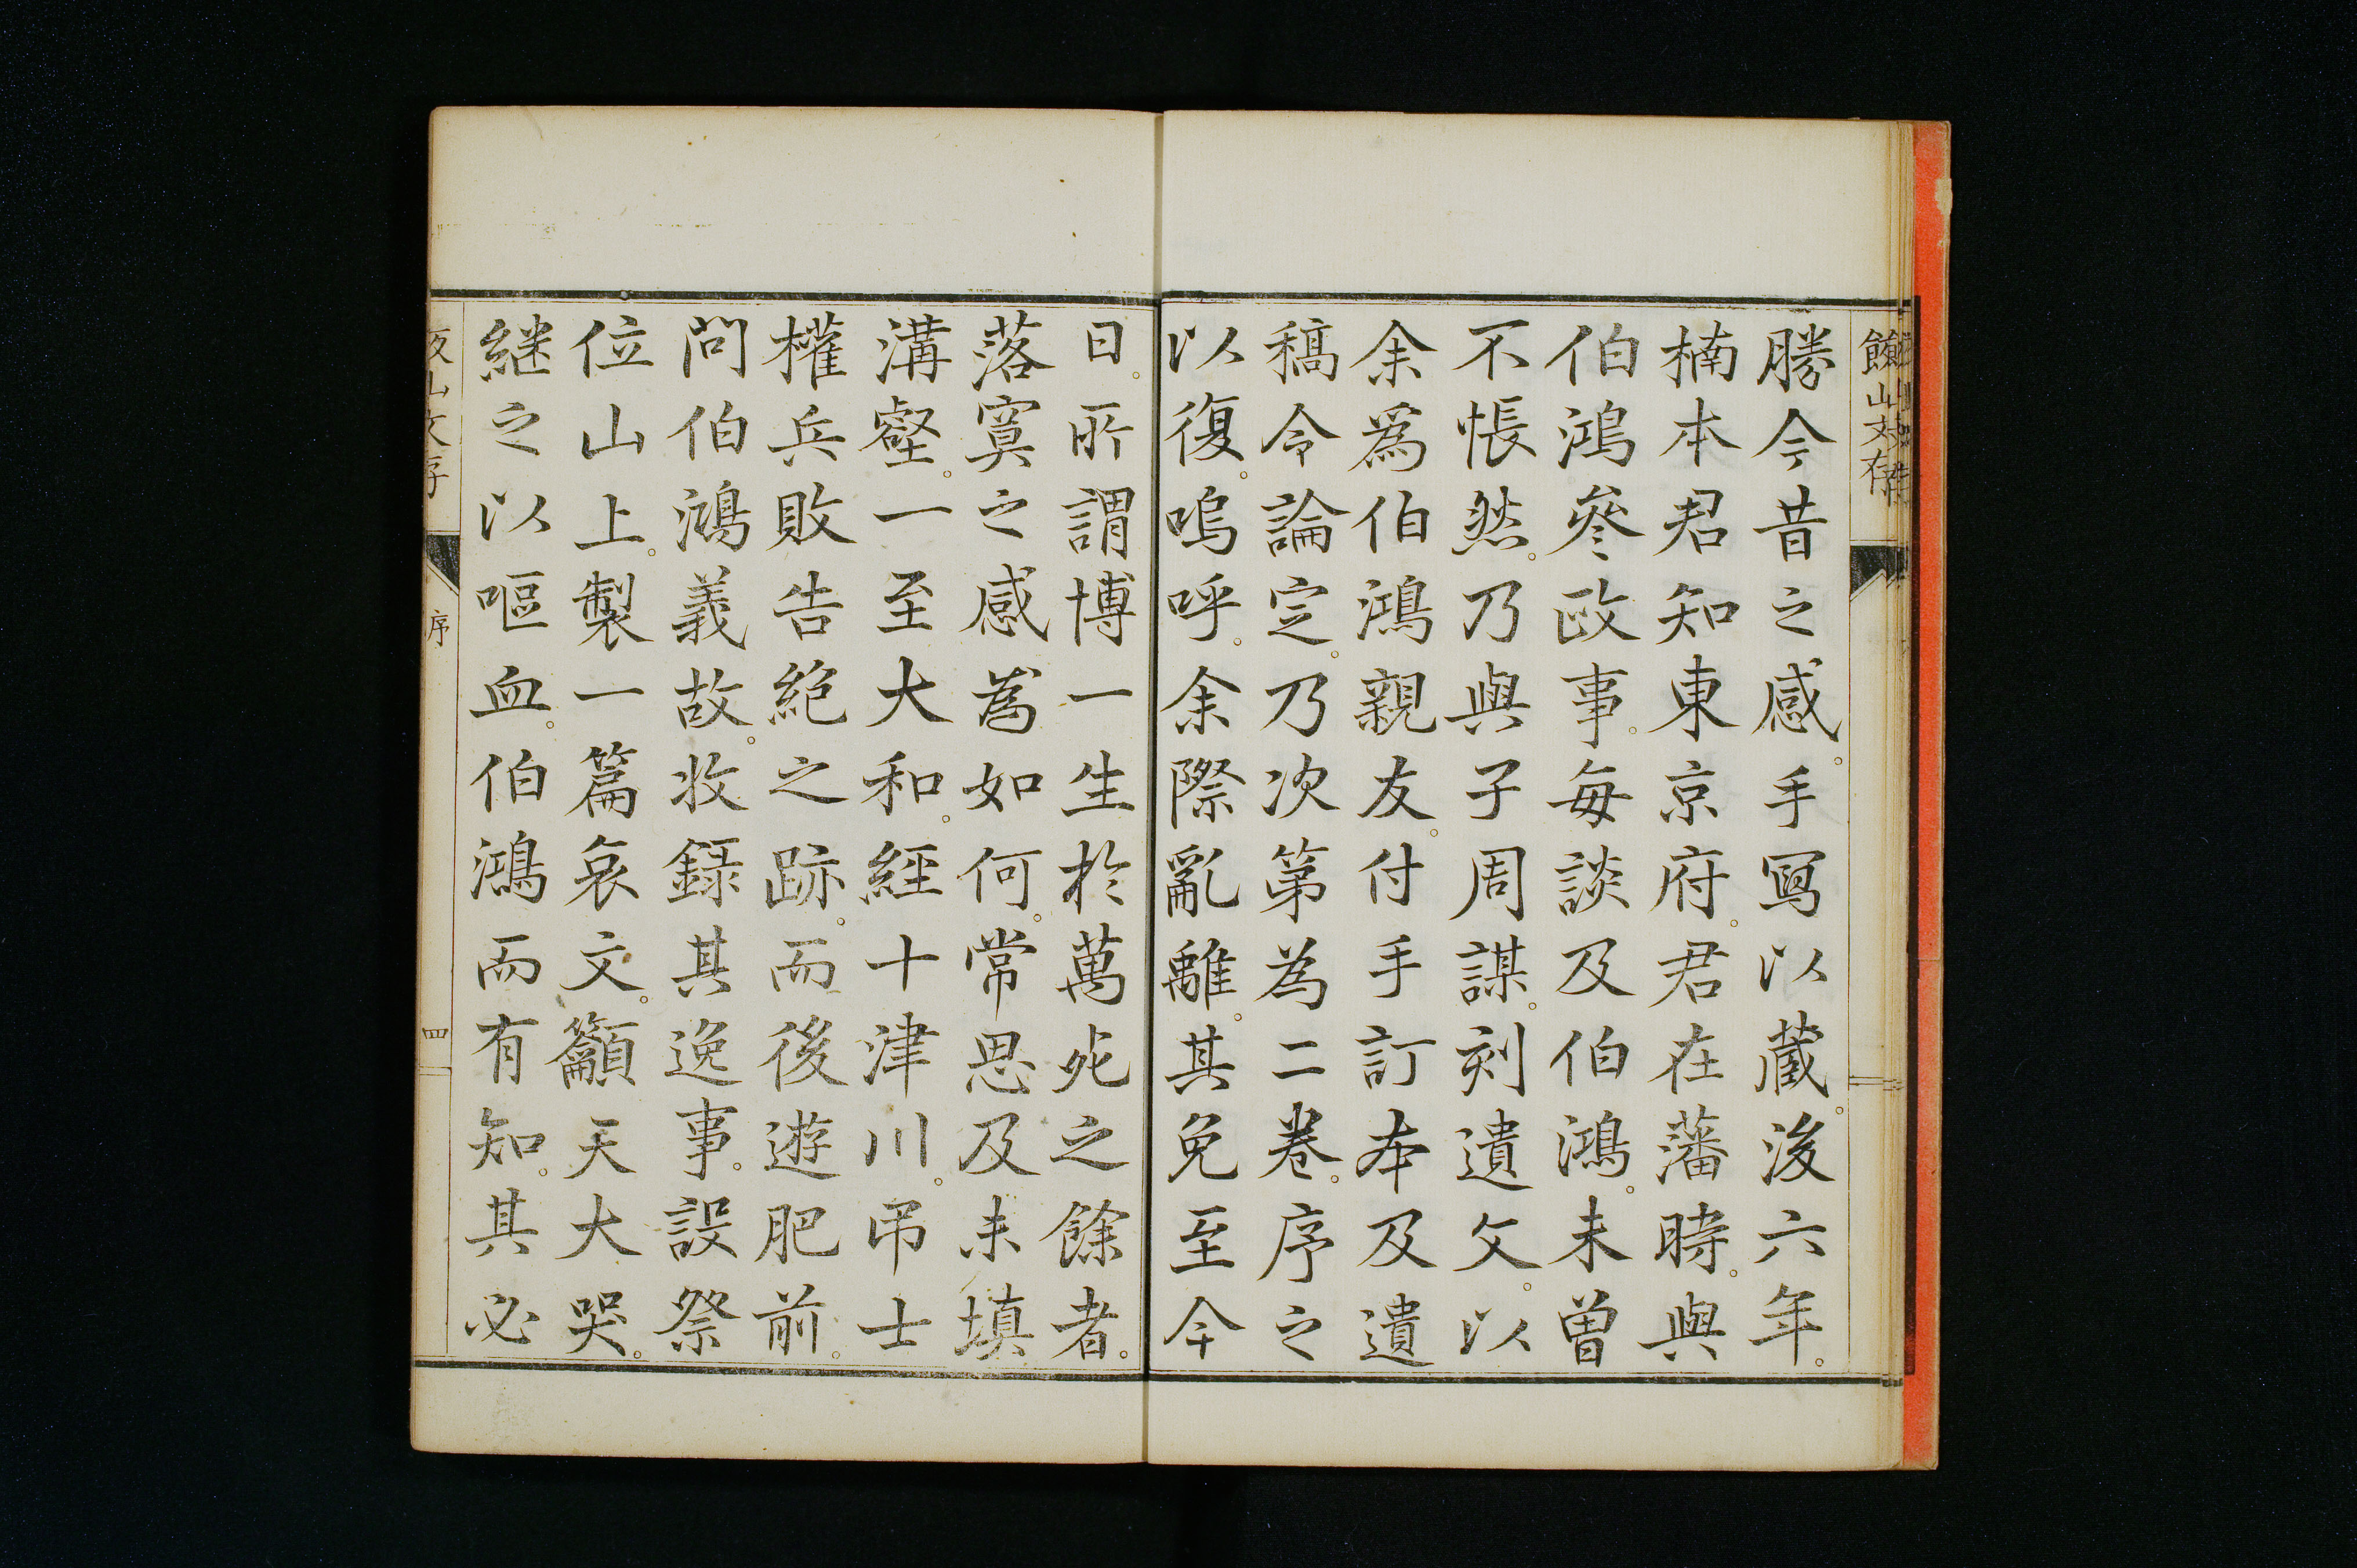 勝今昔之感。手寫以蔵。後六年。
楠本君知東京府。君在藩時。與
伯鴻叅政事。毎談及伯鴻。未曽
不悵然。乃與子周謀。刻遺文。以
余爲伯鴻親友。付手訂本及遺
稿令論定。乃次第為二巻。序之
以復。嗚呼。余際亂離。其免至今
日。所謂博一生於萬死之餘者。
落寞之感為如何。常思及未填
溝壑。一至大和。經十津川。吊士
權兵敗告絶之跡。而後遊肥前。
問伯鴻義故。収録其逸事。設祭
位山上。製一篇哀文。籲天大哭。
継之以嘔血。伯鴻而有知。其必
山文存
序
四